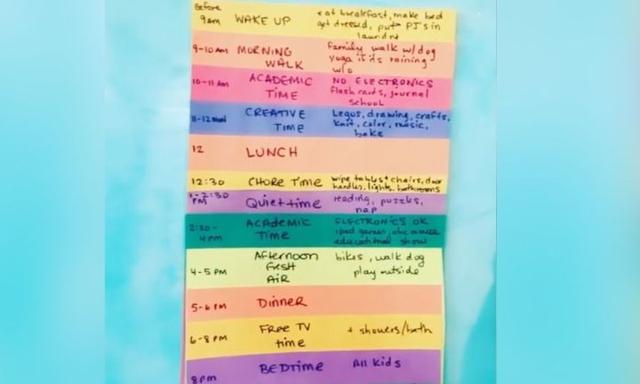 Before
9am WAKE UP eat breakfast, make bed
get dressed, put PJ's in
laundry
9-10 AM MORNING WALK Family walk w/dog
yoga if it's raining
10-11 AM ACADEMIC TIME NO ELECTRONICS
flash cards, journal
school
11-12 CREATIVE TIME Legos, drawing, crafts,
knit, color, music,
bake
12 LUNCH
12:30 CHORE TIME wipe tables + chairs, door
handles, lights, bathrooms
1-2:30 PM Quiet time reading, puzzles,
nap
2:30-4PM ACADEMIC TIME ELECTRONICS OK
ipad games,
educational show
4-5 PM Afternoon Fresh AIR bikes, walk dog
play outside
5-6 PM Dinner
6-8 PM Free TV time + showers/bath
8pm BEDTIME All kids